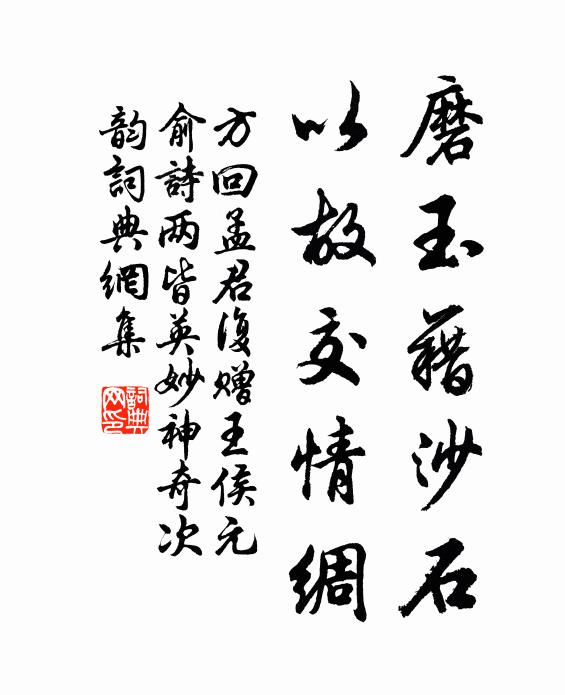 磨玉藉沙石
以故交情绸
方回孟君復赠王侯元
俞詩两皆英妙神奇次
韵詞典網集
詞典
网印